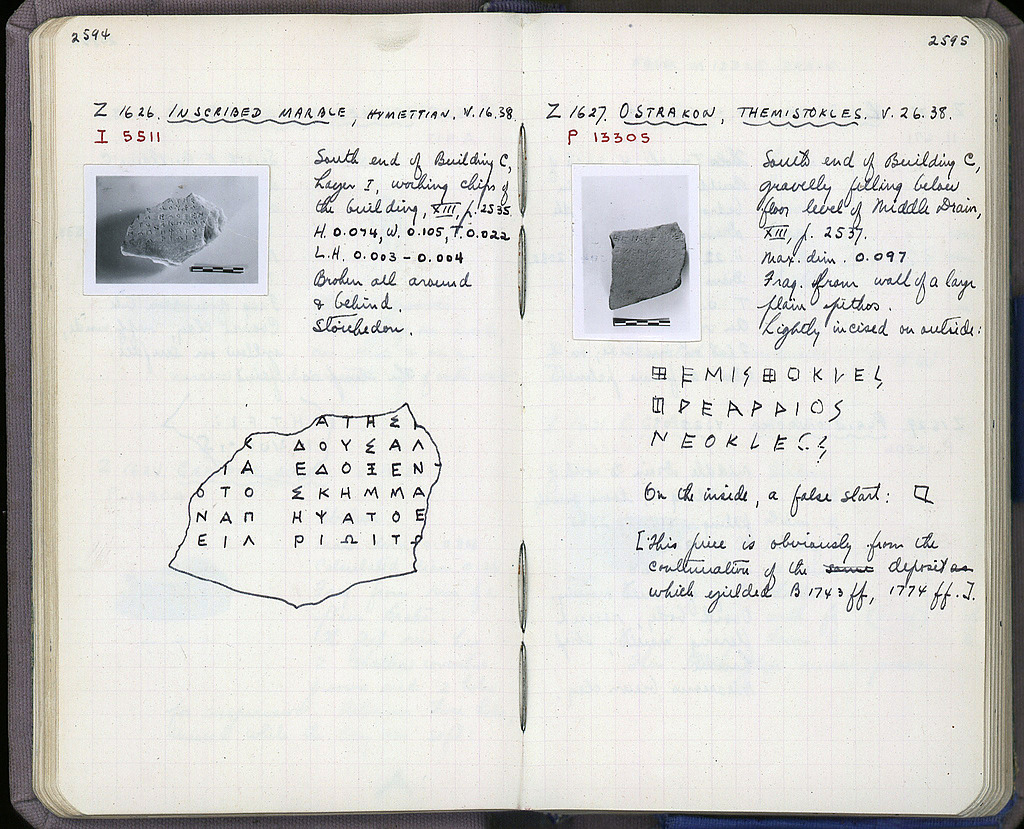 2594
Z 1626. INSCRIBED MARBLE, HYMETTIAN. V.16.38.
I 5511
South end of Building C,
Layer I, working chips of
the building, XIII, p. 2535
H. 0.074, W. 0.105, T. 0.022
L.H. 0.003 – 0.004
Broken all around
& behind.
Stoichedon.
ΑΤΗΣ
Κ ΔΟΥΣΑΛ
ΙΑ ΕΔΟΞΕΝ
ΟΤΟ ΣΚΗΜΜΑ
ΝΑΠ ΗΨΑΤΟΕ
ΕΙΛ ΡΙΩΙΤΟ
2595
Z 1627. OSTRAKON, THEMISTOKLES. V.26.38.
P 13305
South end of Building C,
gravelly filling below
floor level of Middle Drain,
XIII, p. 2537.
Max. dim. 0.097
Frag. from wall of a large
plain pithos.
Lightly incised on outside:
⊞EMIS⊞OKLES
ΕΑΡΡΙΟS
NEOKLE
On the inside, a false start:
[This piece is obviously from the
continuation of the same deposit as
which yielded B 1743 ff, 1774 ff. J.